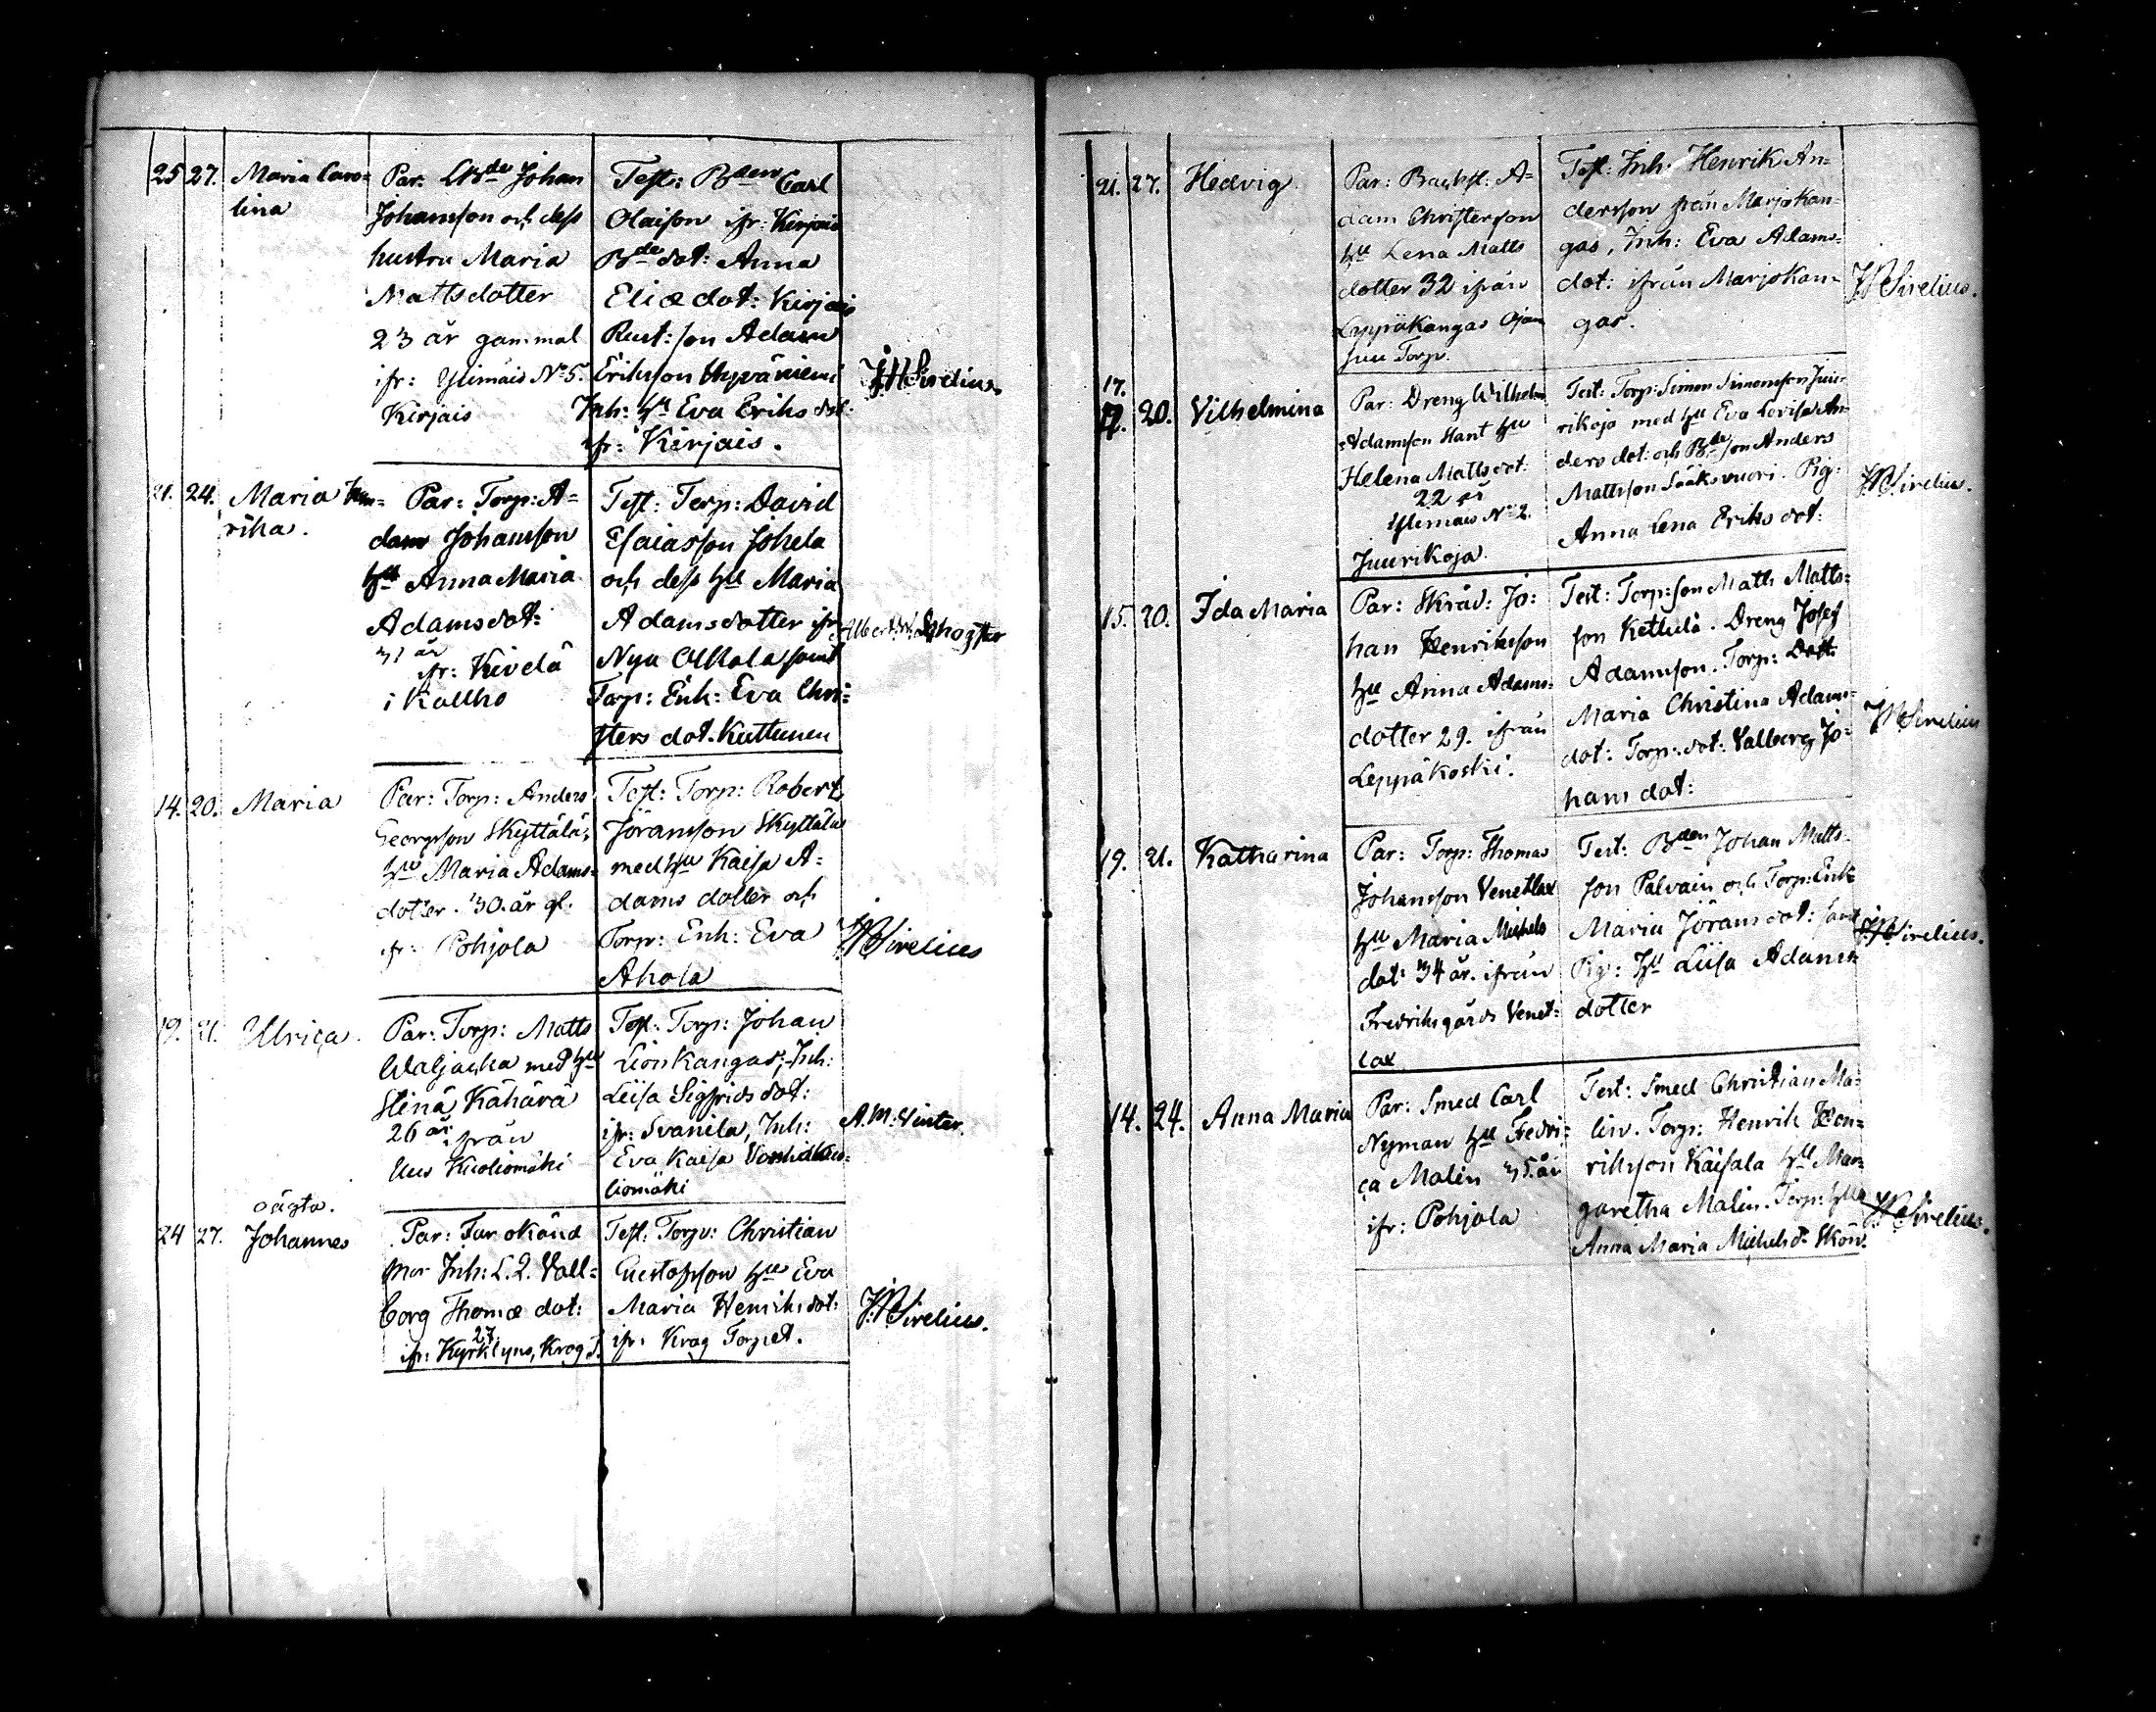 25 27. Maria Caro=
lina
Par: LBde Johan
Johansson och dess
hustru Maria
Mattsdotter
23 år gammal
ifr: Ylimäis No 5.
Kirjais
Test: Bden Carl
Olaison ifr: Kirjais
Bde dot: Anna
Eliæ dot: Kirjais
Rust: son Adam
Eriksson Hyväniemi
Inh: Hu Eva Eriks dot:
ifr: Kirjais.
21. 24. Maria Hen=
rika.
Par: Torp: A=
dam Johansson
hu Anna Maria
Adamsdot:
31 år
ifr: Kivelä
i Kallho
Test: Torp: David
Esaiasson Johela
och dess hu Maria
Adamsdotter ifr
Nya Ollala samt
Torp: Enh: Eva Chri=
sters dot. Kuttunen
14. 20. Maria
Par: Torp: Anders
Georgsson Skyttälä,
hu Maria Adams=
dotter. 30. år gl.
ifr: Pohjola
Test: Torp: Robert
Jöransson Skyttälä
med hu Kaisa A=
dams dotter och
Torp: Enh: Eva
Ahola
JHSirelius
19. 21. Ulrica.
Par: Torp: Matts
Waljacka med hu
Stina Kähärä
26 år ifrån
Uus Kuoliomäki
Test: Torp: Johan
Lionkangas, Inh:
Liisa Sigfrids dot:
ifr: Svanila, Inh:
Eva Kaisa
liomäki
A.M. Winter.
oägta.
24 27. Johannes
Par: Far okänd
Mor Inh: L. Q. Vall=
borg Thomæ dot:
27.
ifr: Kyrkbyns, Krog T.
Test: Torp: Christian
Gustafsson hu Eva
Maria Henriks dot:
ifr: Krog Torpet.
JHSirelius.
21. 27. Hedvig
Par: Backst: A=
dam Christersson
hu Lena Matts
dotter 32 ifrån
Leppäkangas Ojan
suu Torp.
Test: Inh: Henrik An=
dersson från Marjokan=
gas, Inh: Eva Adams=
dot: ifrån Marjokan=
gas.
JHSirelius.
17.
20. Vilhelmina
Par: Dreng Wilhelm
Adamsson Hant hu
Helena Mattsdot:
22 år
Ylimäis No 2.
Juurikoja
Test: Torp: Simon Simonsson Juu=
rikoja med hu Eva Lovisa An=
ders dot: och Bde son Anders
Mattsson Sääksvuori. Pig:
Anna Lena Eriks dot:
JHSirelius.
15. 20. Ida Maria
Par: Skräd: Jo:
han Henriksson
hu Anna Adams=
dotter 29. ifrån
Leppäkoski.
Test: Torp: son Matts Matts=
son Kettulä. Dreng Josef
Adamsson. Torp: Dott:
Maria Christina Adams=
dot: Torp: dot: Valborg Jo=
hans dot:
JHSirelius
19. 21. Katharina
Par: Torp: Thomas
Johansson Venetlax
hu Maria Michels
dot: 34 år. ifrån
Fredriksgårds Venet=
lax
Test: Bden Johan Matts=
son Palvain och Torp: Enk=
Maria Jörans dot: samt
Pig: Hu Liisa Adams
dotter
JHSirelius.
14. 24. Anna Maria
Par: Smed Carl
Nyman hu Fredri=
ca Malin 35. år
ifr: Pohjola
Test: Smed Christian Ma=
lin. Torp: Henrik Hen=
riksson Kaisala hu Mar=
garetha Malin. Torp: hu
Anna Maria Michels d.
JHSirelius.